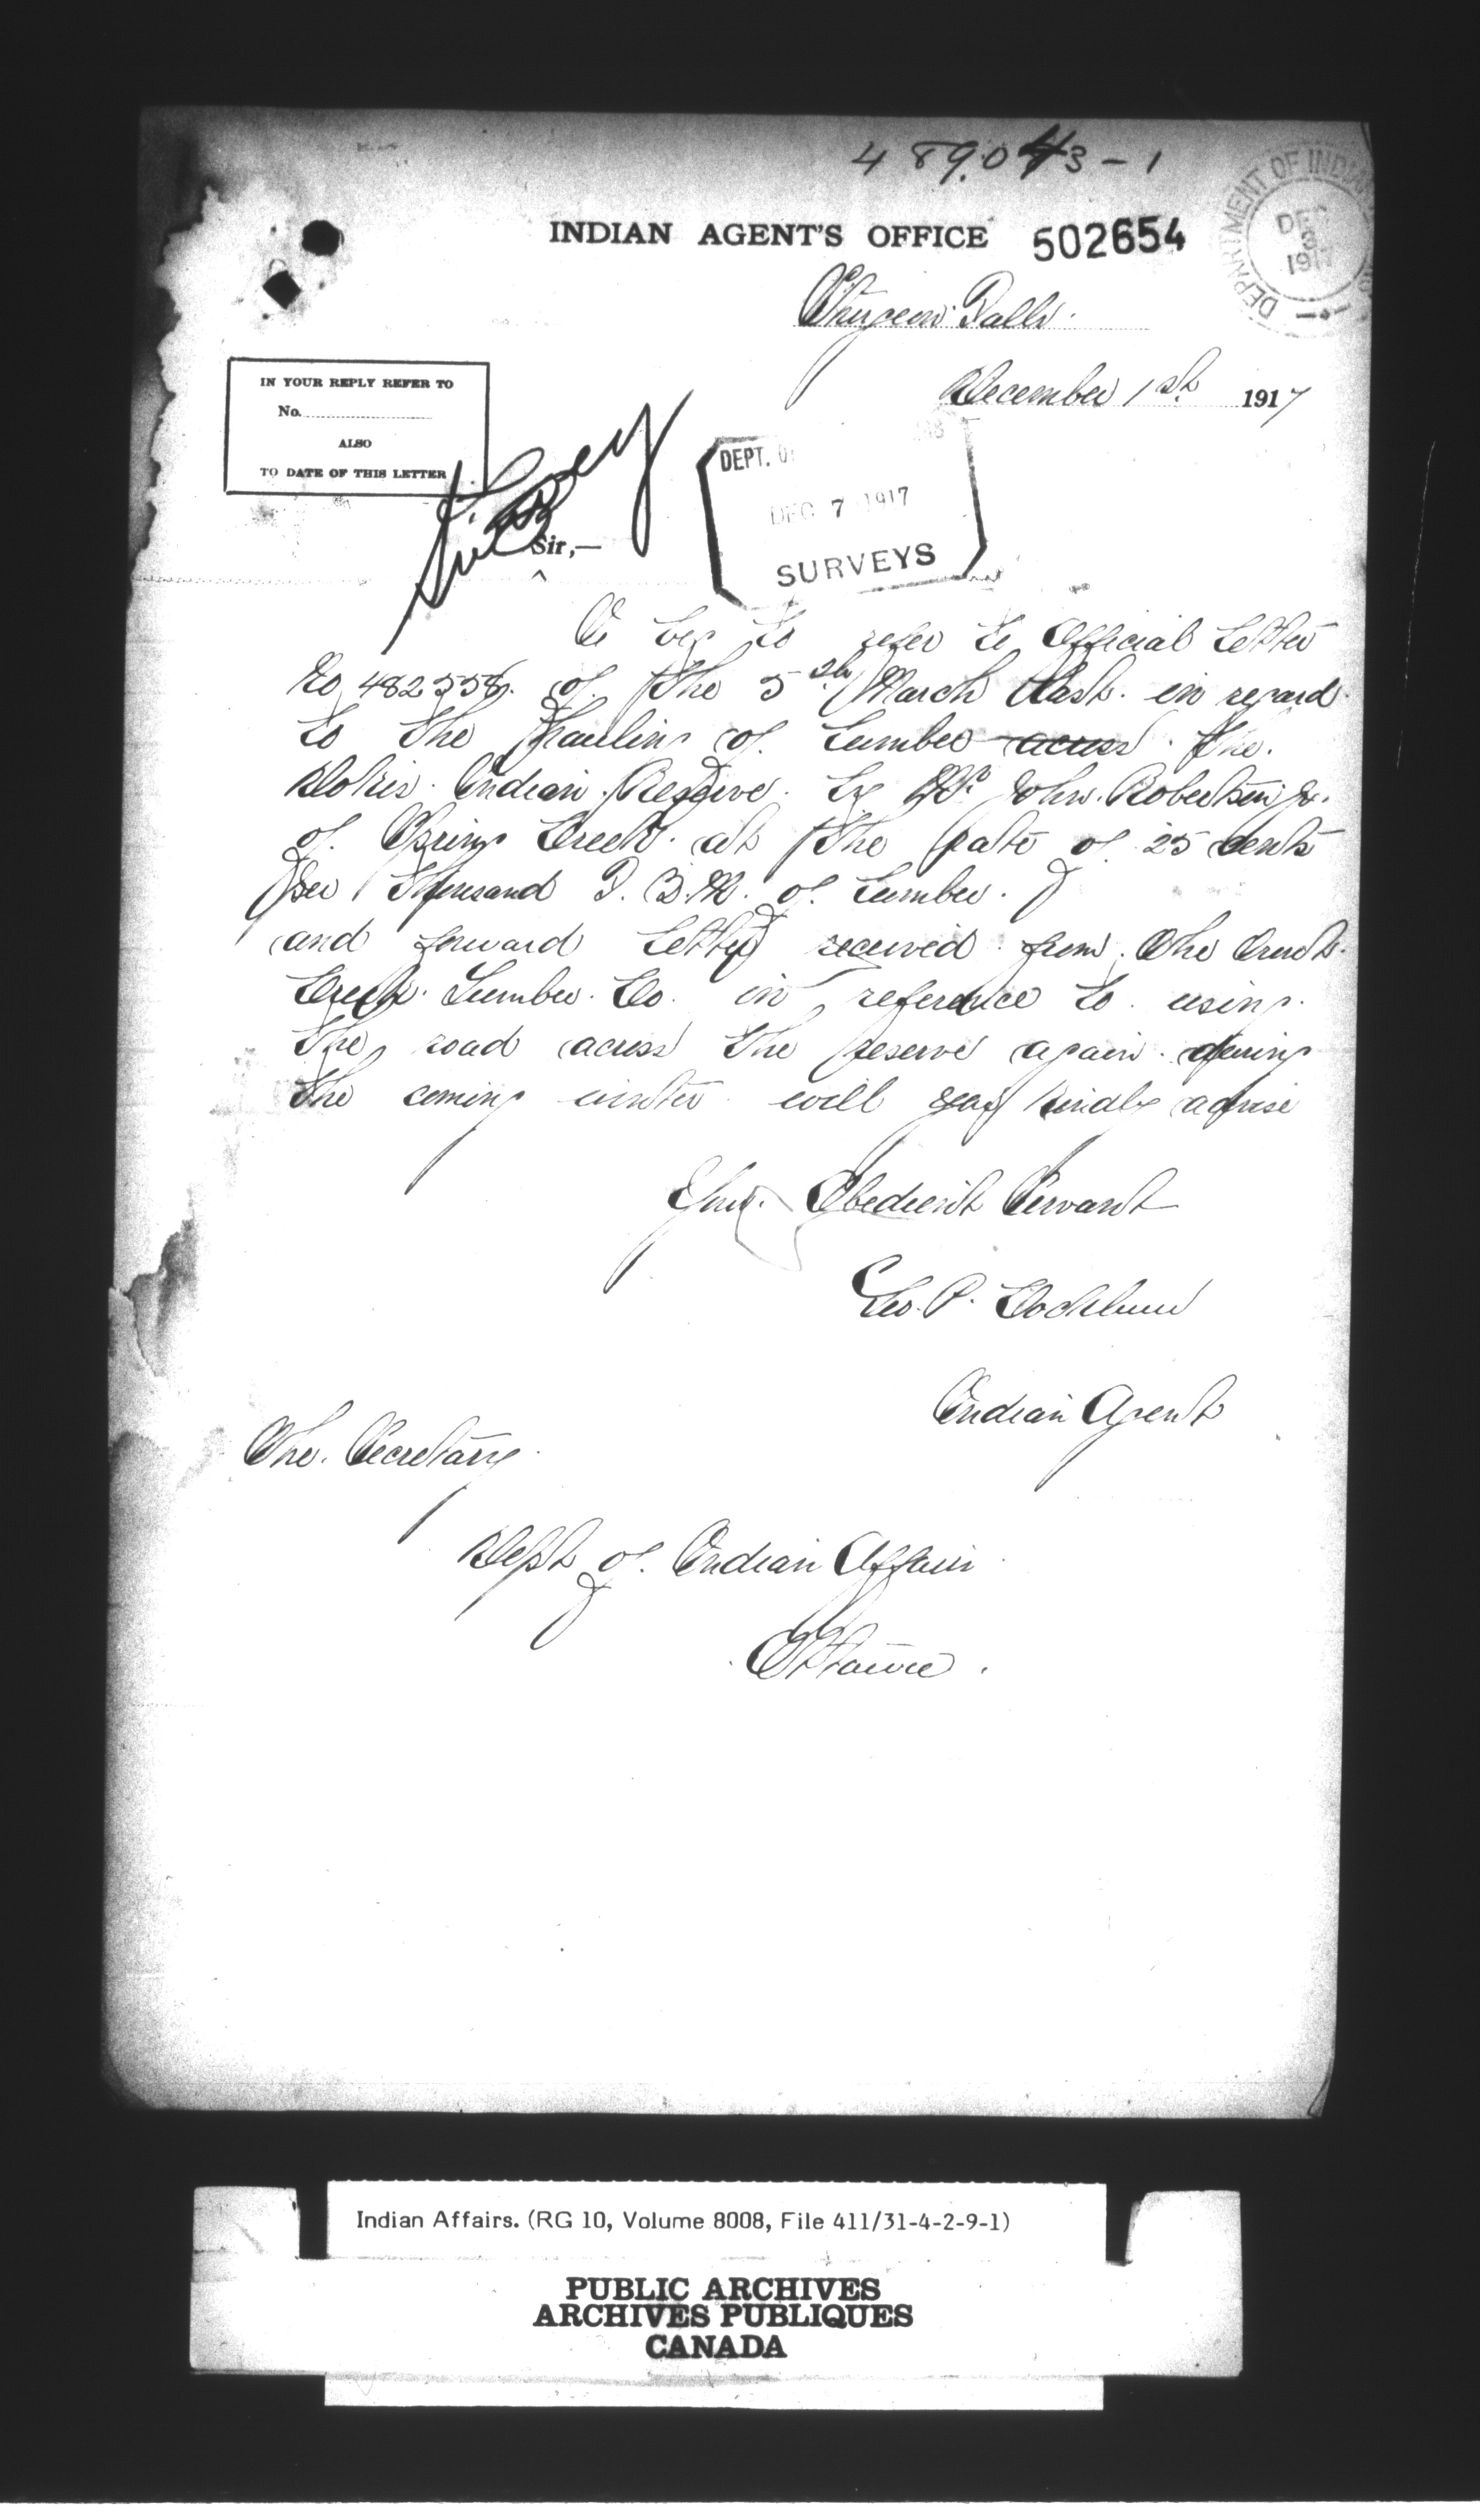 489.043-1
INDIAN AGENT'S OFFICE 502654
DEPARTMENT OF INDIAN
DEC
3
1917
Sturgeon Falls.
December 1st. 1917
IN YOUR REPLY REFER TO
No.
ALSO
TO DATE OF THIS LETTER
DEPT. OF
DEC 7 1917
SURVEYS
Survey
Sir,—
I beg to refer to Official Letter
No 482338. of the 5th March Last. in regard
to the Hauling of Lumber across. the.
Dokis. Indian. Reserve. by Mr John. Robertson Jr.
of. Spring Creek. at the rate of 25 cents
per Thousand F. B.M. of Lumber.
and forward Letter received from. The
Creek. Lumber. Co. in reference to using.
the road across the reserve again. during
the coming winter will you kindly advise
Your. Obedient Servant
Geo. P. Cockburn
Indian Agent
The. Secretary.
Dept of. Indian Affairs
Ottawa.
Indian Affairs. (RG 10, Volume 8008, File 411/31-4-2-9-1)
PUBLIC ARCHIVES
ARCHIVES PUBLIQUES
CANADA